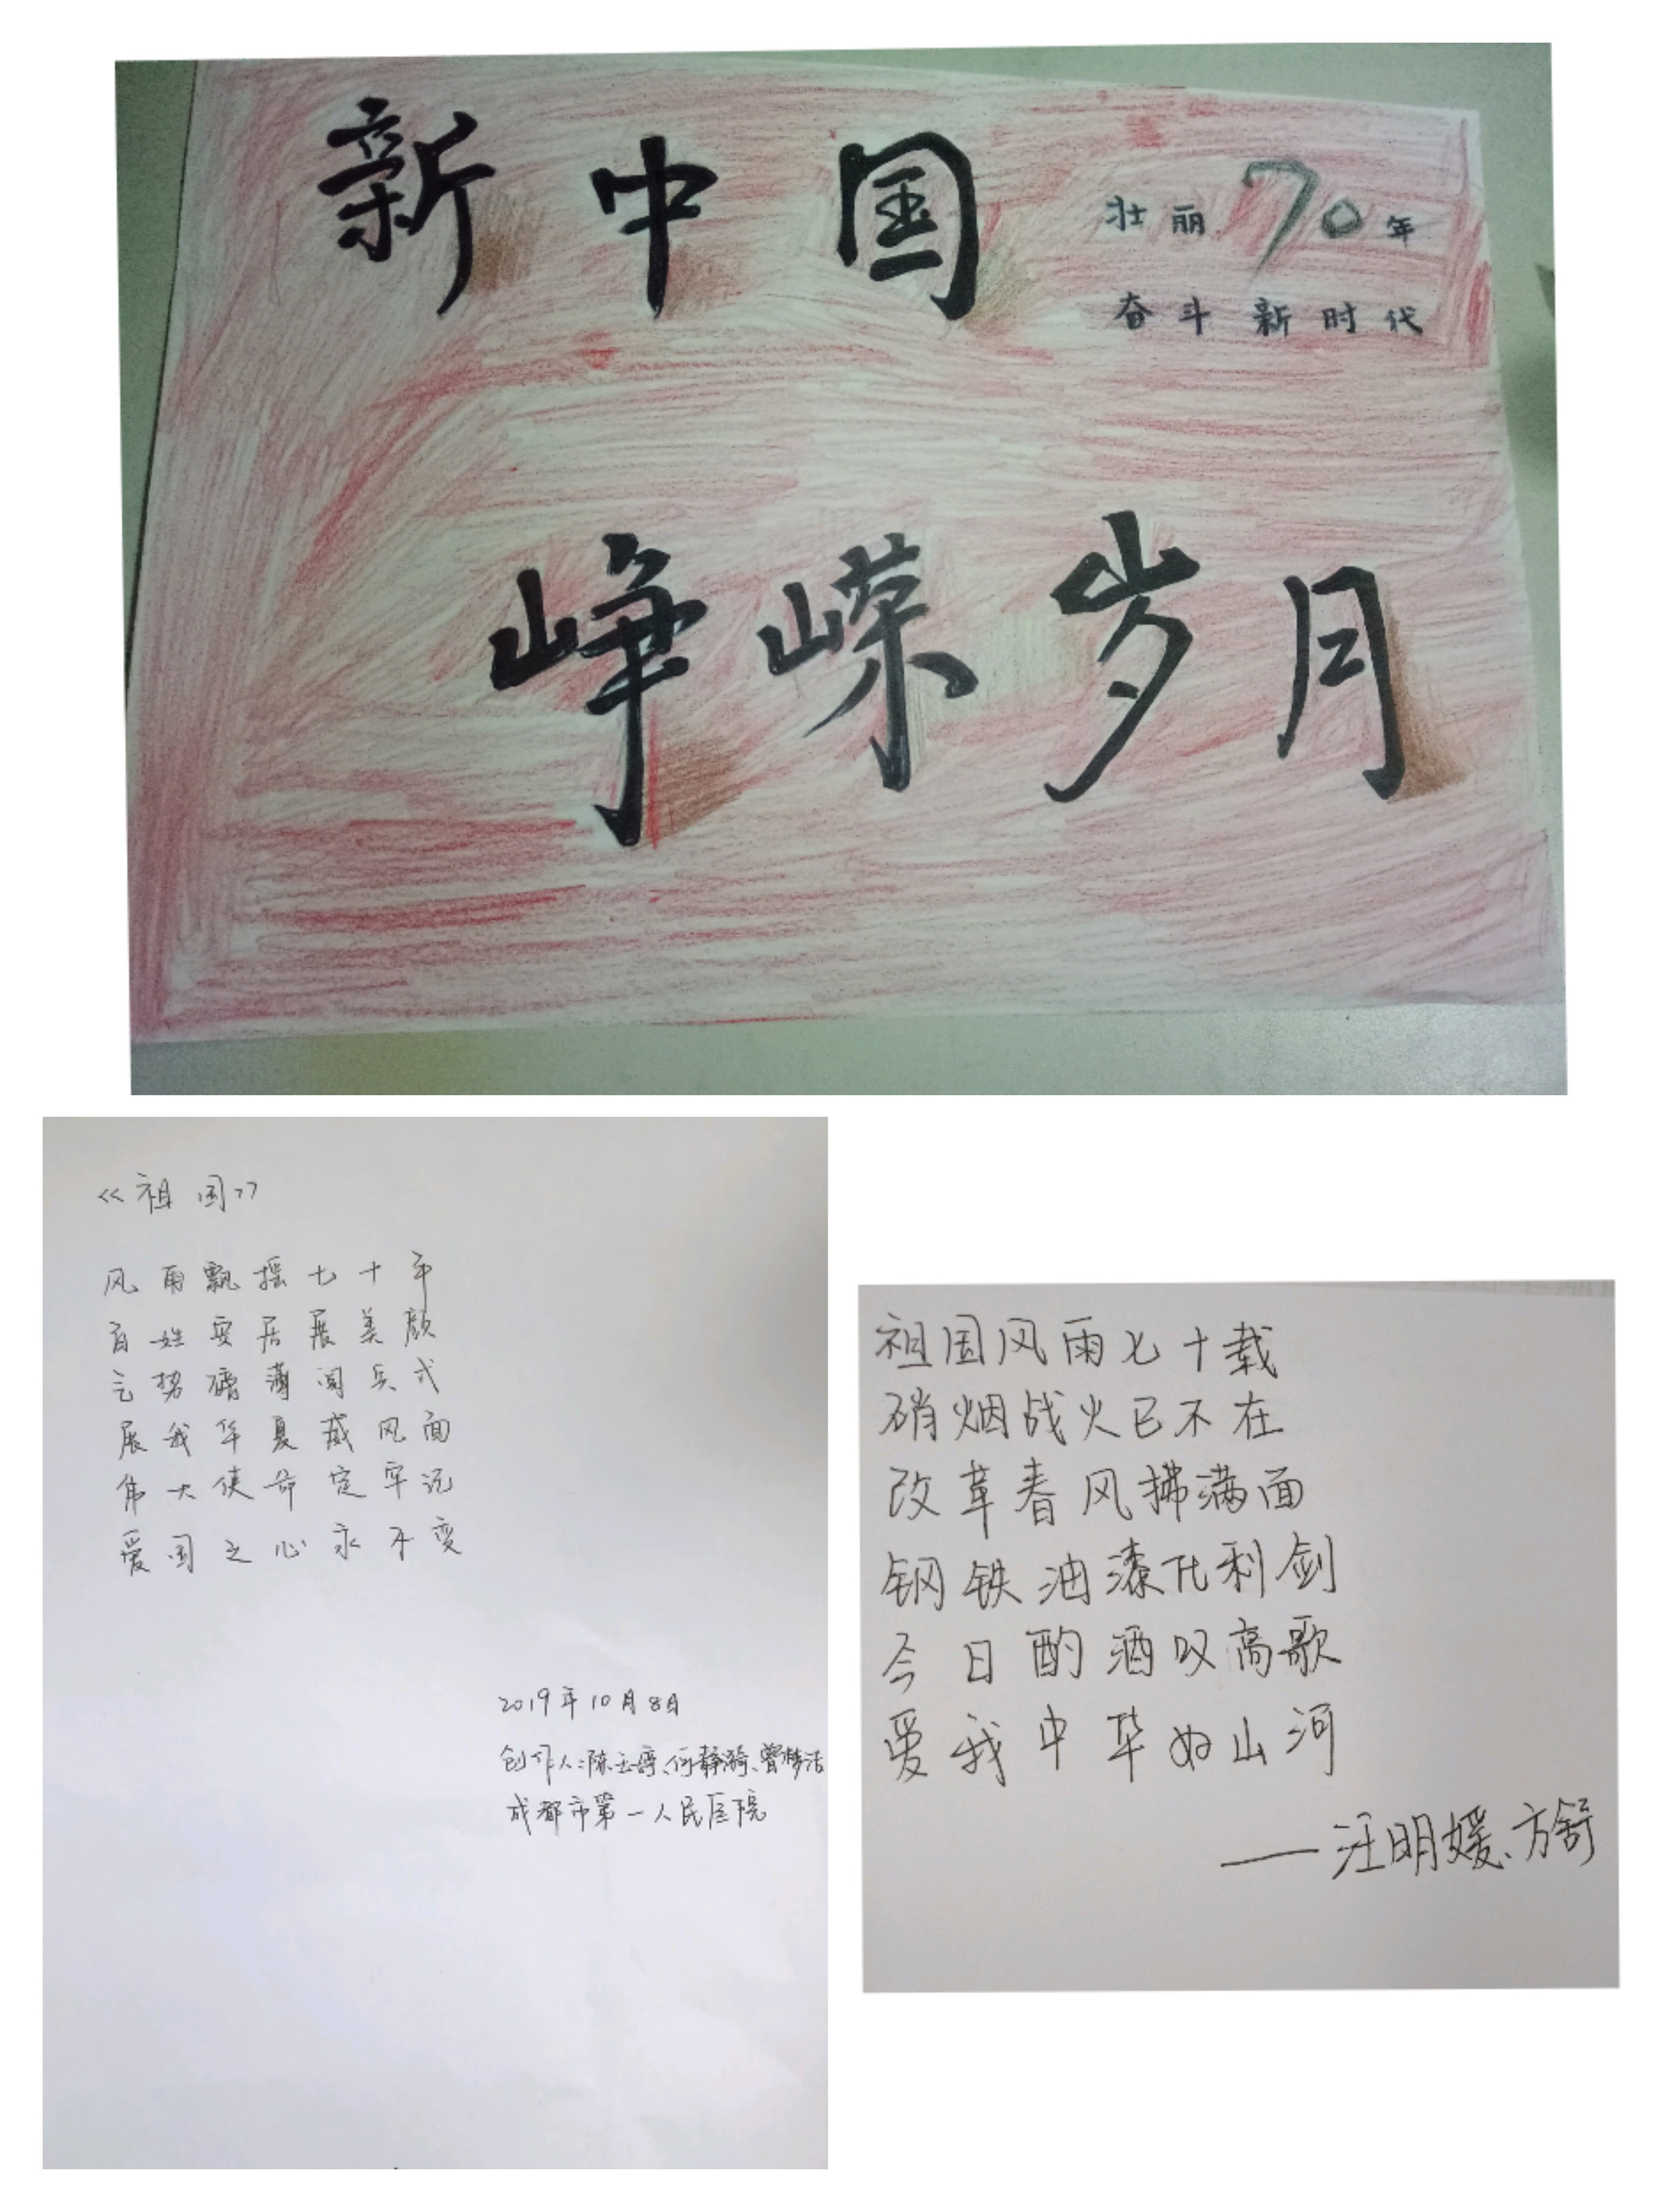 新中国
壮丽70年
奋斗新时代
峥嵘岁月
《祖国》
风雨飘摇七十年
百姓安居展美颜
气势磅薄阅兵式
展我华夏威风面
伟大使命定牢记
爱国之心永不变
2019年10月8日
创作人:陈玉婷、何静漪、曾梦洁
成都市第一人民医院
祖国风雨七十载
硝烟战火已不在
改革春风拂满面
钢铁油漆化利剑
今日酌酒叹高歌
爱我中华如山河
——汪明媛、方舒